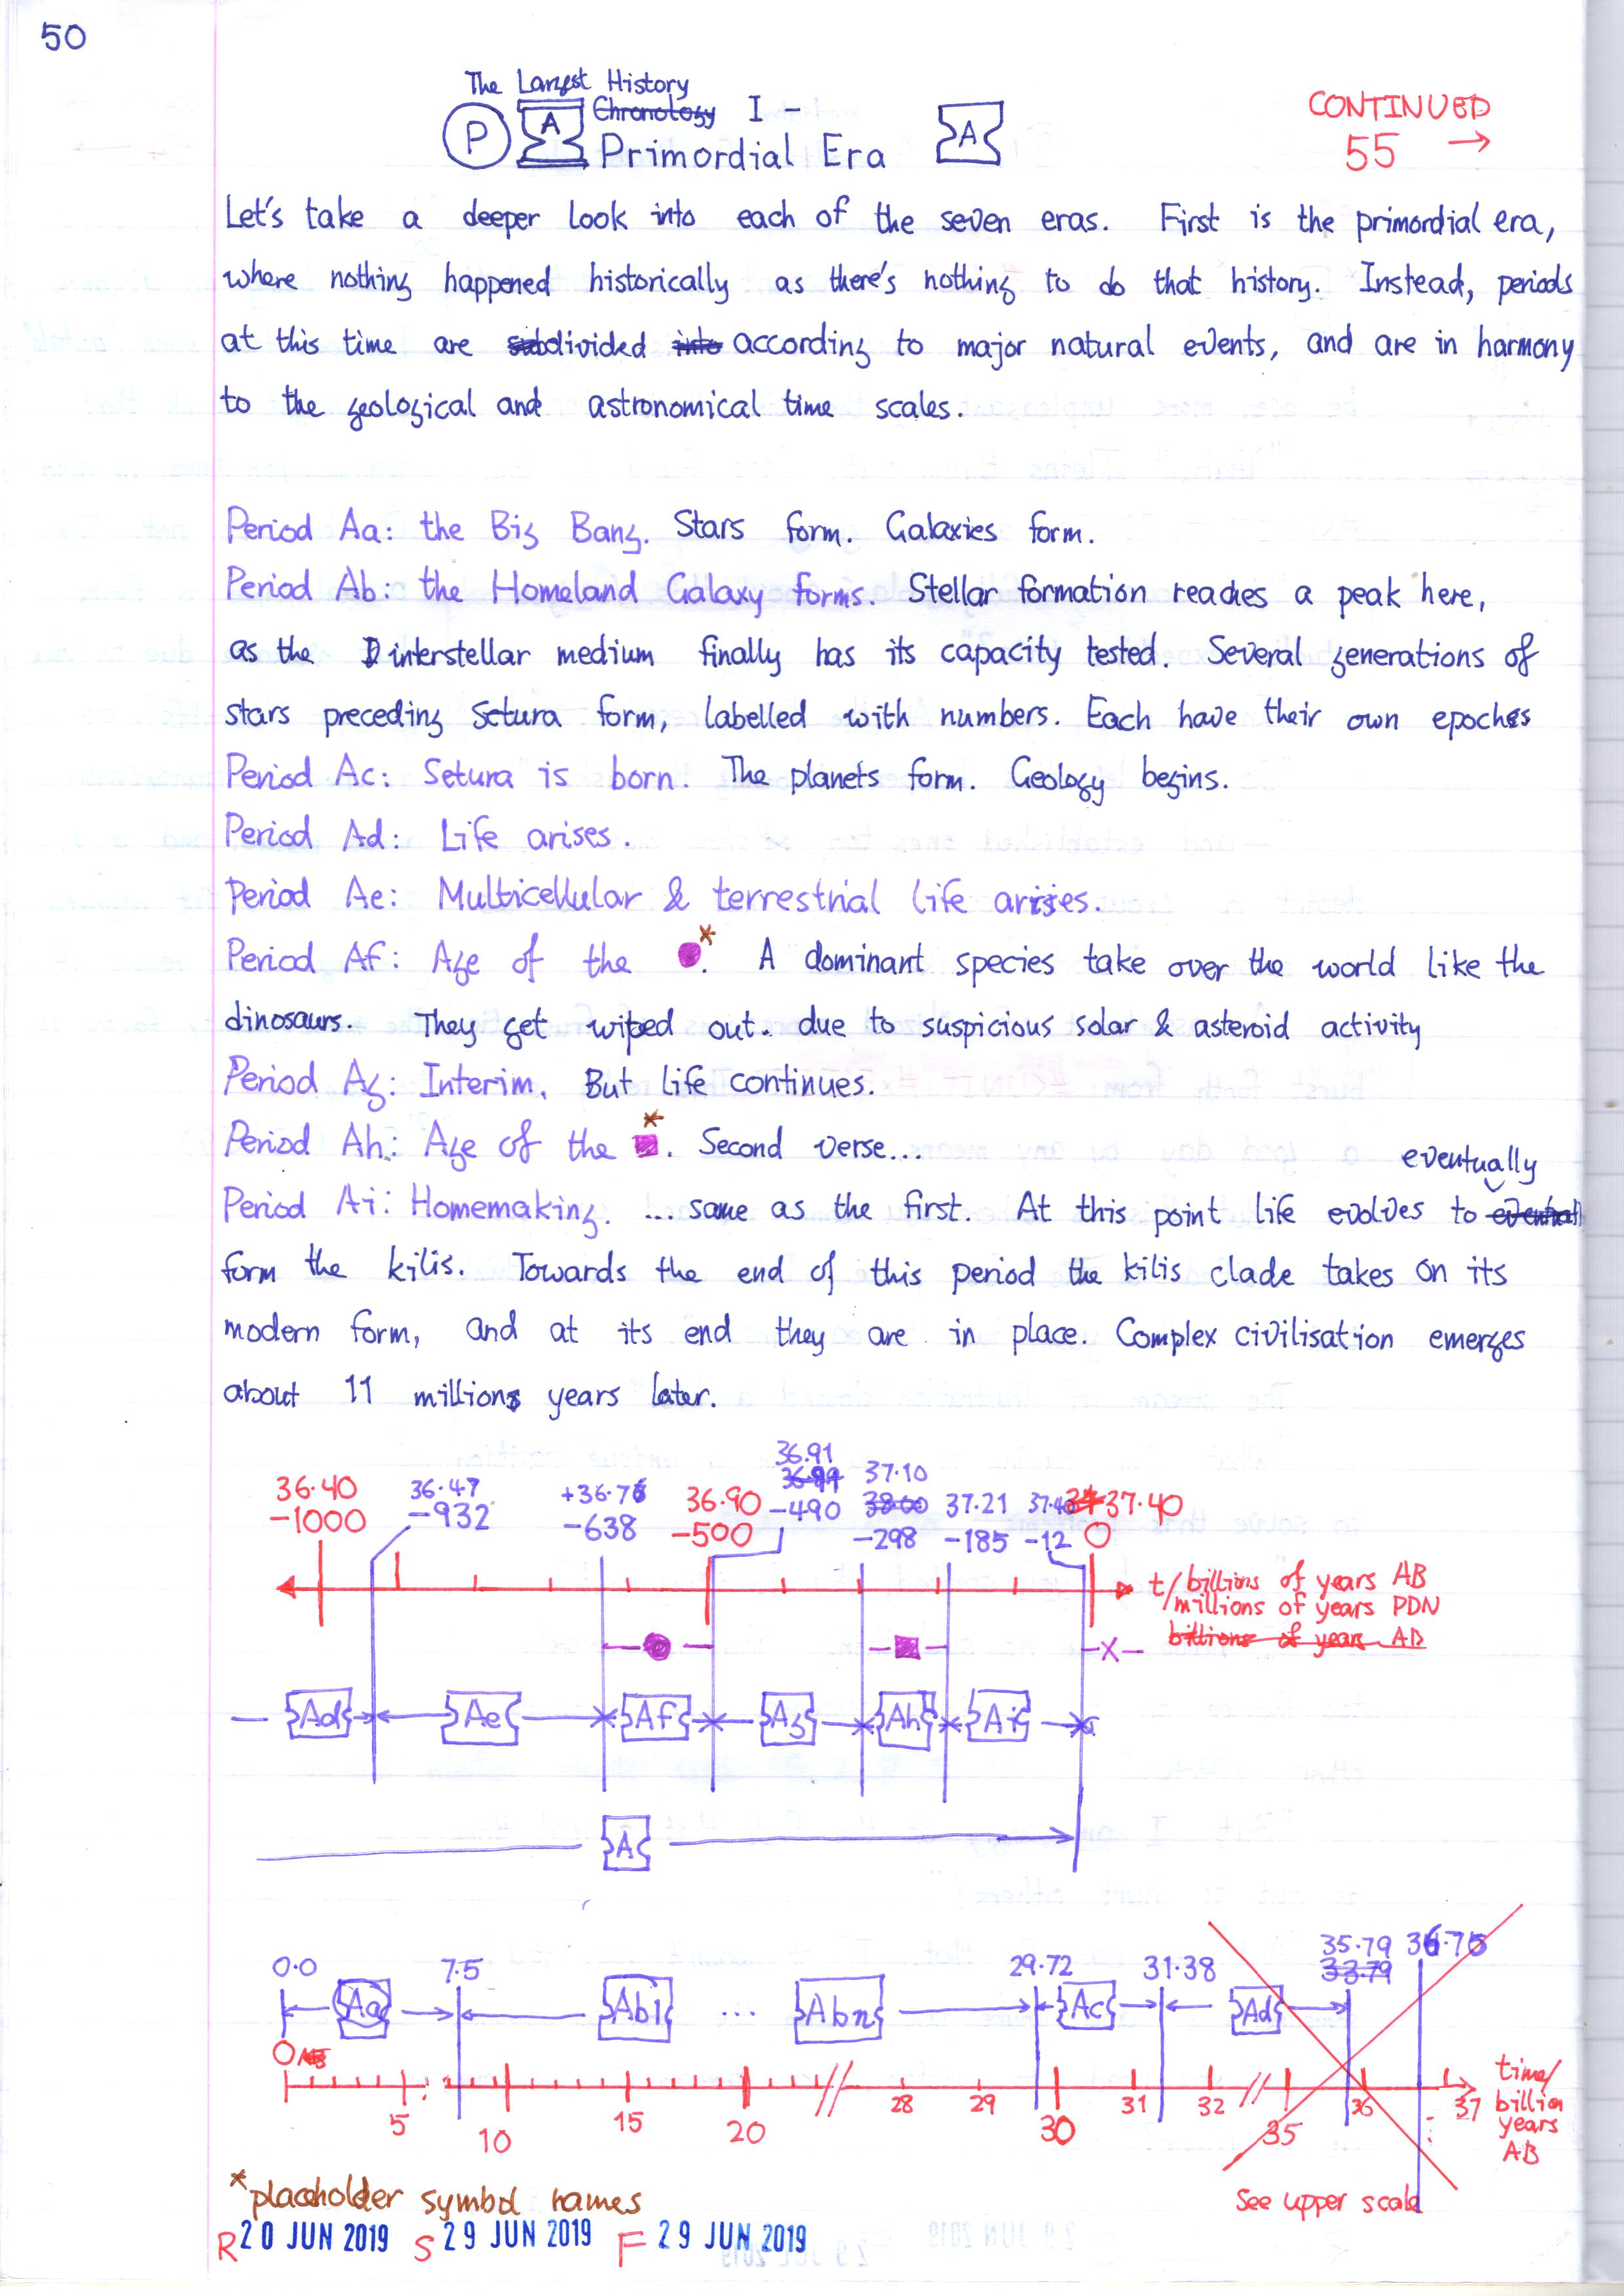 50
The Largest History
P A Chronology I -
Primordial Era A
CONTINUED
55 →
Let's take a deeper look into each of the seven eras. First is the primordial era,
where nothing happened historically as there's nothing to do that history. Instead, periods
at this time are subdivided into according to major natural events, and are in harmony
to the geological and astronomical time scales.
Period Aa: the Big Bang. Stars form. Galaxies form.
Period Ab: the Homeland Galaxy forms. Stellar formation reaches a peak here,
as the interstellar medium finally has its capacity tested. Several generations of
stars preceding Setura form, labelled with numbers. Each have their own epochs
Period Ac: Setura is born. The planets form. Geology begins.
Period Ad: Life arises.
Period Ae: Multicellular & terrestrial life arises.
Period Af: Age of the ●*. A dominant species take over the world like the
dinosaurs. They get wiped out. due to suspicious solar & asteroid activity
Period Ag: Interim. But life continues.
Period Ah: Age of the ■*. Second verse...
eventually
Period Ai: Homemaking. ... same as the first. At this point life evolves to
form the kilis. Towards the end of this period the kilis clade takes on its
modern form, and at its end they are in place. Complex civilisation emerges
about 11 million years later.
36.91
36.40 36.47 +36.76 36.90 37.10 37.21 37.40 37.40
-1000 -932 -638 -500 -490 38.00 -298 -185 -12 0
t/billions of years AB
/millions of years PDN
billions of years AB
● ■ -X-
Ad Ae Af Ag Ah Ai
A
0.0 7.5 29.72 31.38 35.79 36.76
33.79
Aa Ab1 ... Abn Ac Ad
0
5 10 15 20 28 29 30 31 32 35 36 37
time/
billion
years
AB
See upper scale
*placeholder symbol names
R 20 JUN 2019 S 29 JUN 2019 F 29 JUN 2019